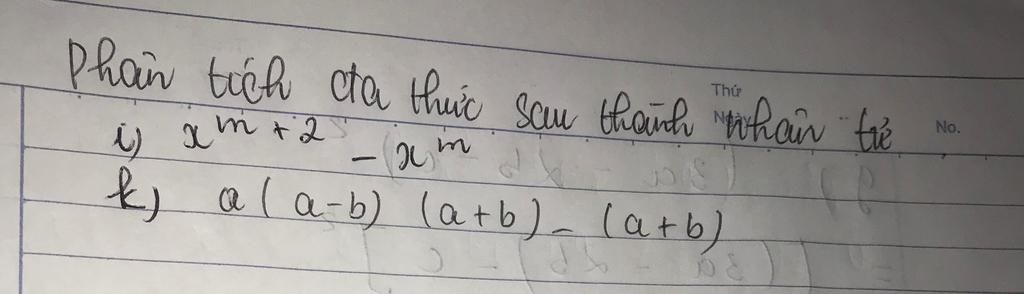 Phân tích đa thức sau thành nhân tử
Thứ
Ngày
No.
i) x^{m+2} - x^m
k) a(a-b)(a+b) - (a+b)